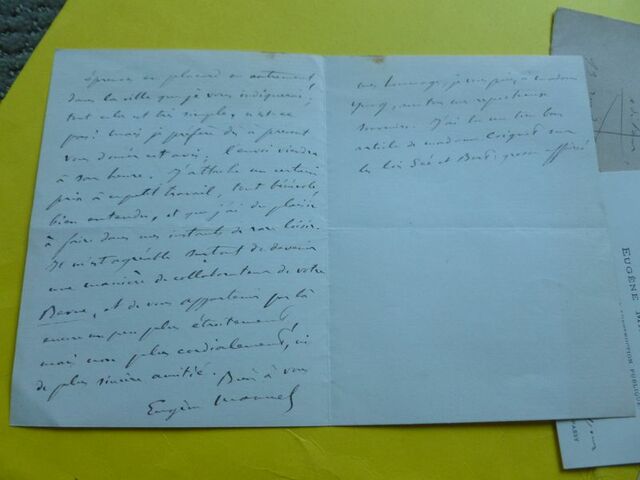 épreuves en placard ou autrement
dans la ville que je vous indiquerai ;
tout cela est très simple, n'est-ce
pas ? mais je préfère dès à présent
vous donner cet avis ; l'envoi viendra
à son heure. J'attache un certain
prix à ce petit travail, tout bénévole,
bien entendu, et que j'ai du plaisir
à faire dans mes instants de rare loisir.
Il m'est agréable surtout de devenir
une manière de collaborateur de votre
Revue, et de vous appartenir par là
encore un peu plus étroitement,
mais non plus cordialement, ni
de plus sincère amitié. Bien à vous
Eugène Manuel
mes hommages, je vous prie, à madame
mon respectueux
souvenir. J'ai lu un bon
article de madame Coignet sur
les lois Sée et Bert : grosse affaire
EUGÈNE
INSTRUCTION PUBLIQUE
PASSY